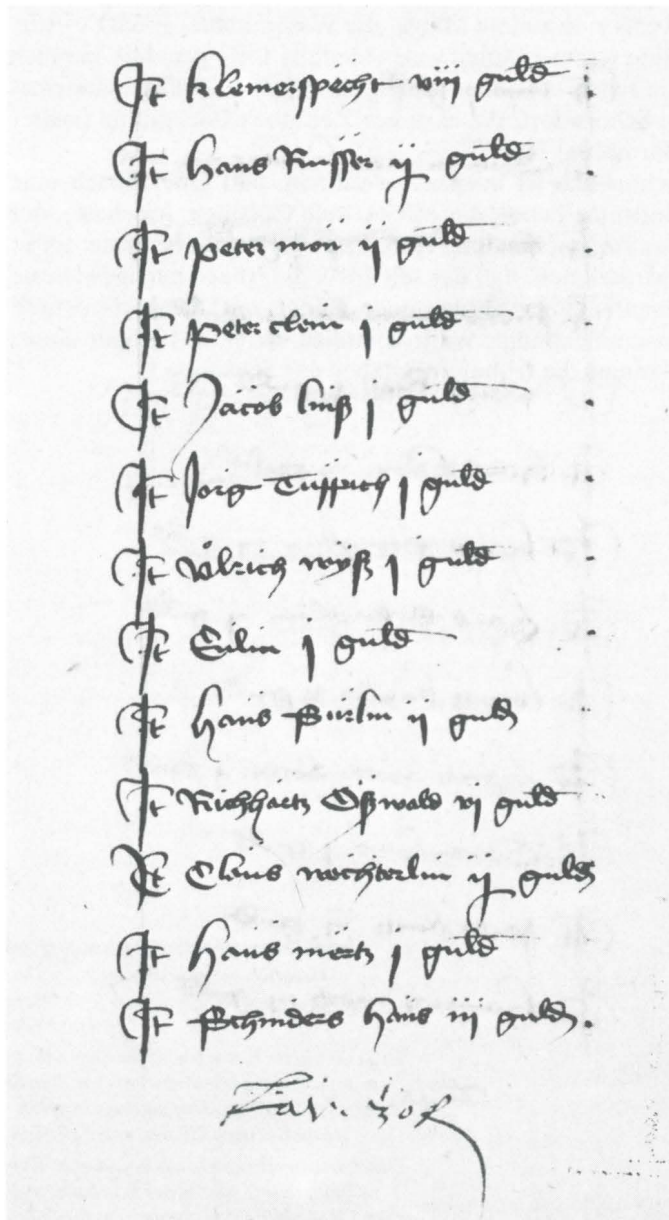 It klemerspecht viij guld
It Hans Russer ij guld
It peter mor j guld
It peter clem j guld
It Jacob luß j guld
It Jorg j guld
It Vlrich wyß j guld
It Eilin j guld
It Hans Burlin ij guld
It Richhartz Oßwald vj guld
It Claus wechterlin ij guld
It Hans mertz j guld
It Schinders Hans iij guld